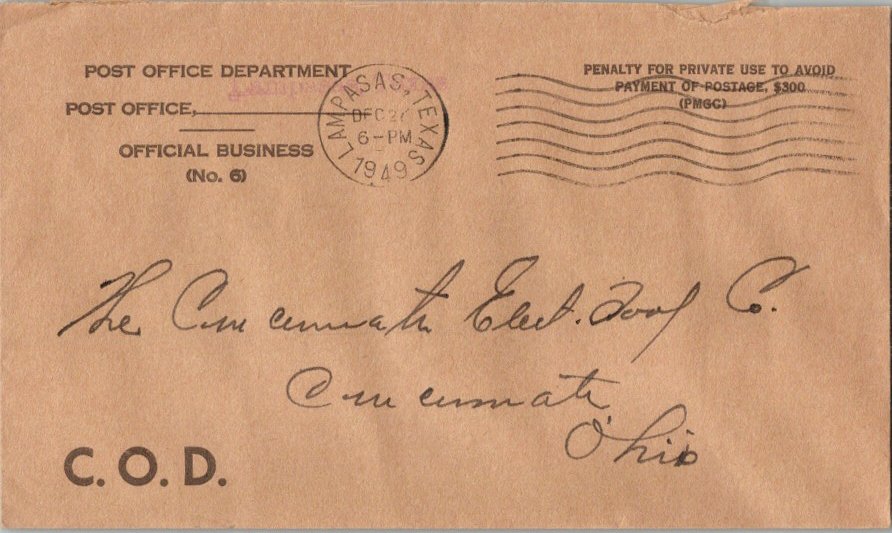 POST OFFICE DEPARTMENT
POST OFFICE,
OFFICIAL BUSINESS
(No. 6)
LAMPASAS, TEXAS
DEC 27
6-PM
1949
PENALTY FOR PRIVATE USE TO AVOID
PAYMENT OF POSTAGE, $300
(PMGC)
The Cincinnati Elect. Tool Co.
Cincinnati
Ohio
C. O. D.